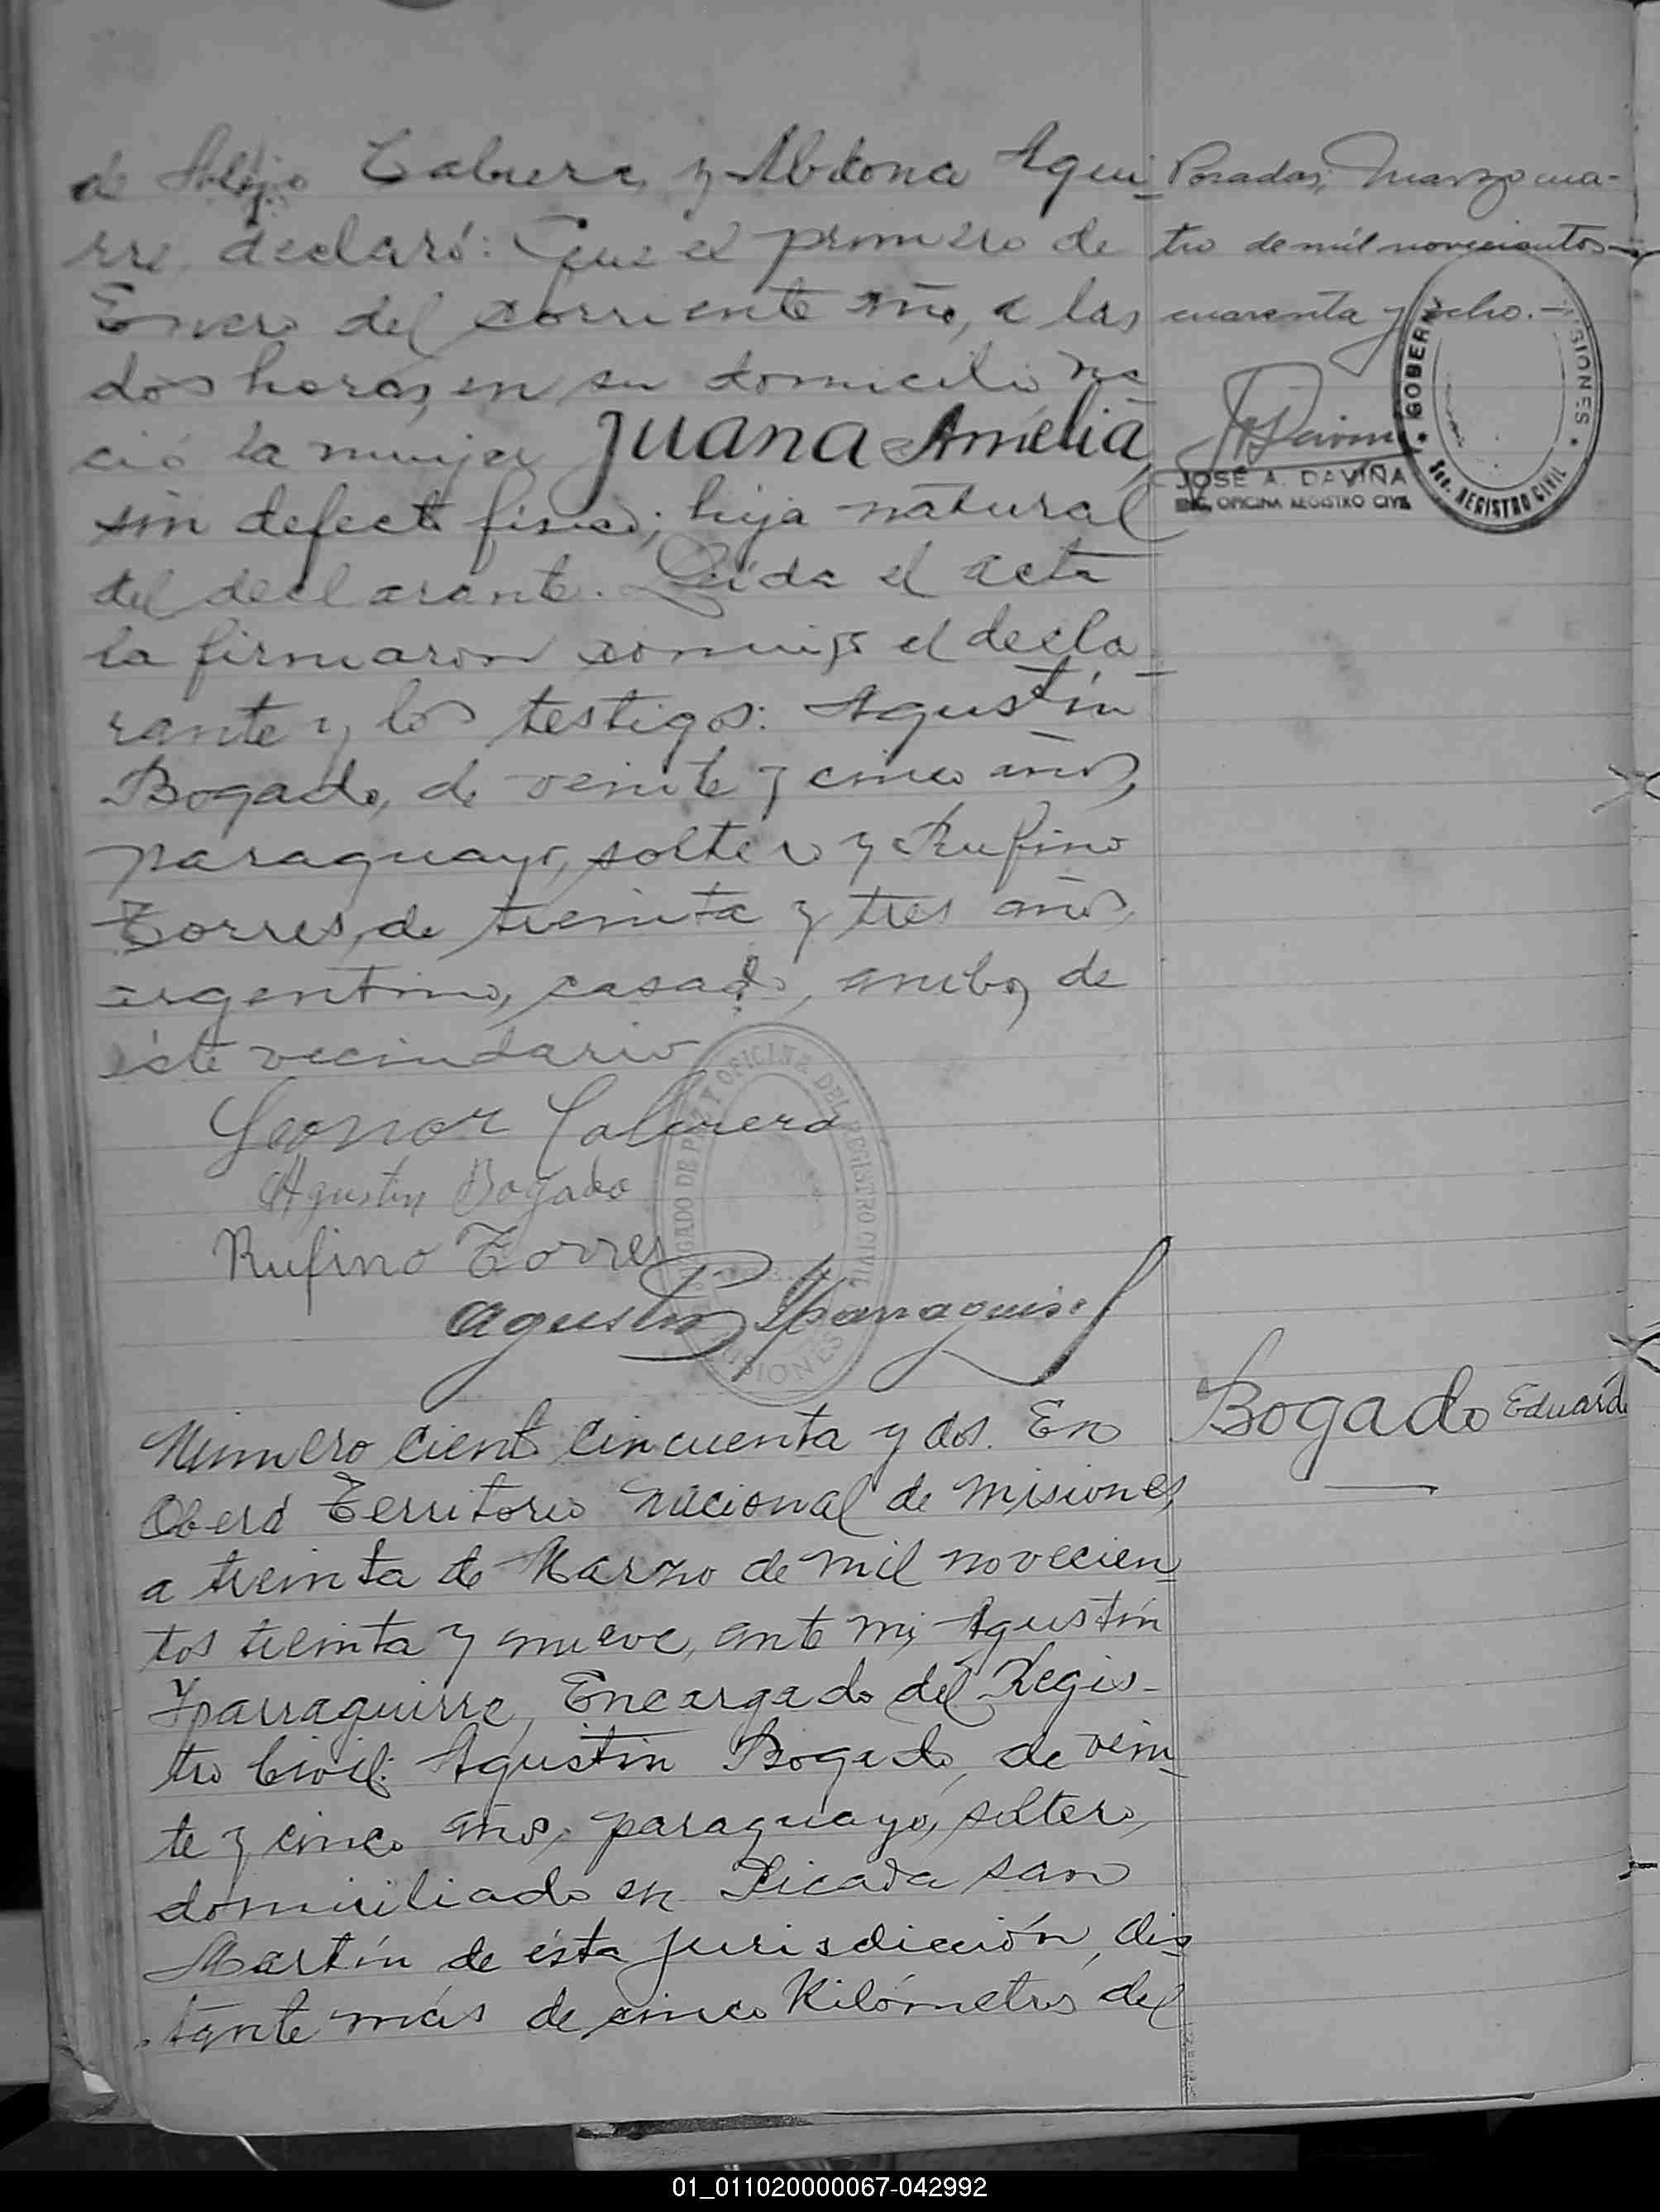 de Alejo Cabrera y Abdona Agui
rre, declaró: Que el primero de
Enero del corriente año, a las
dos horas, en su domicilio na
ció la mujer Juana Amelia,
sin defecto físico; hija natural
del declarante. Leida el acta
la firmaron conmigo el decla
rante y los testigos: Agustín
Bogado, de veinte y cinco años,
paraguayo, soltero y Rufino
Torres, de treinta y tres años,
argentino, casado, ambos de
éste vecindario
Leonor Cabrera
Agustin Bogado
Rufino Torres
Agustin Yparraguirre
JUZGADO DE PAZ Y OFICINA DEL REGISTRO CIVIL
MISIONES
Posadas, Marzo cua-
tro de mil novecientos
cuarenta y ocho.-
JOSÉ A. DAVIÑA
ENC. OFICINA REGISTRO CIVIL
GOBERN
MISIONES
Sec. REGISTRO CIVIL
Número ciento cincuenta y dos. En
Oberá Territorio Nacional de Misiones,
a treinta de Marzo de mil novecien
tos treinta y nueve, ante mi, Agustín
Yparraguirre, Encargado del Regis-
tro Civil: Agustín Bogado, de vein
te y cinco años, paraguayo, soltero,
domiciliado en Picada San
Martín de ésta jurisdicción, dis
tante más de cinco Kilómetros del
Bogado Eduardo
01_011020000067-042992